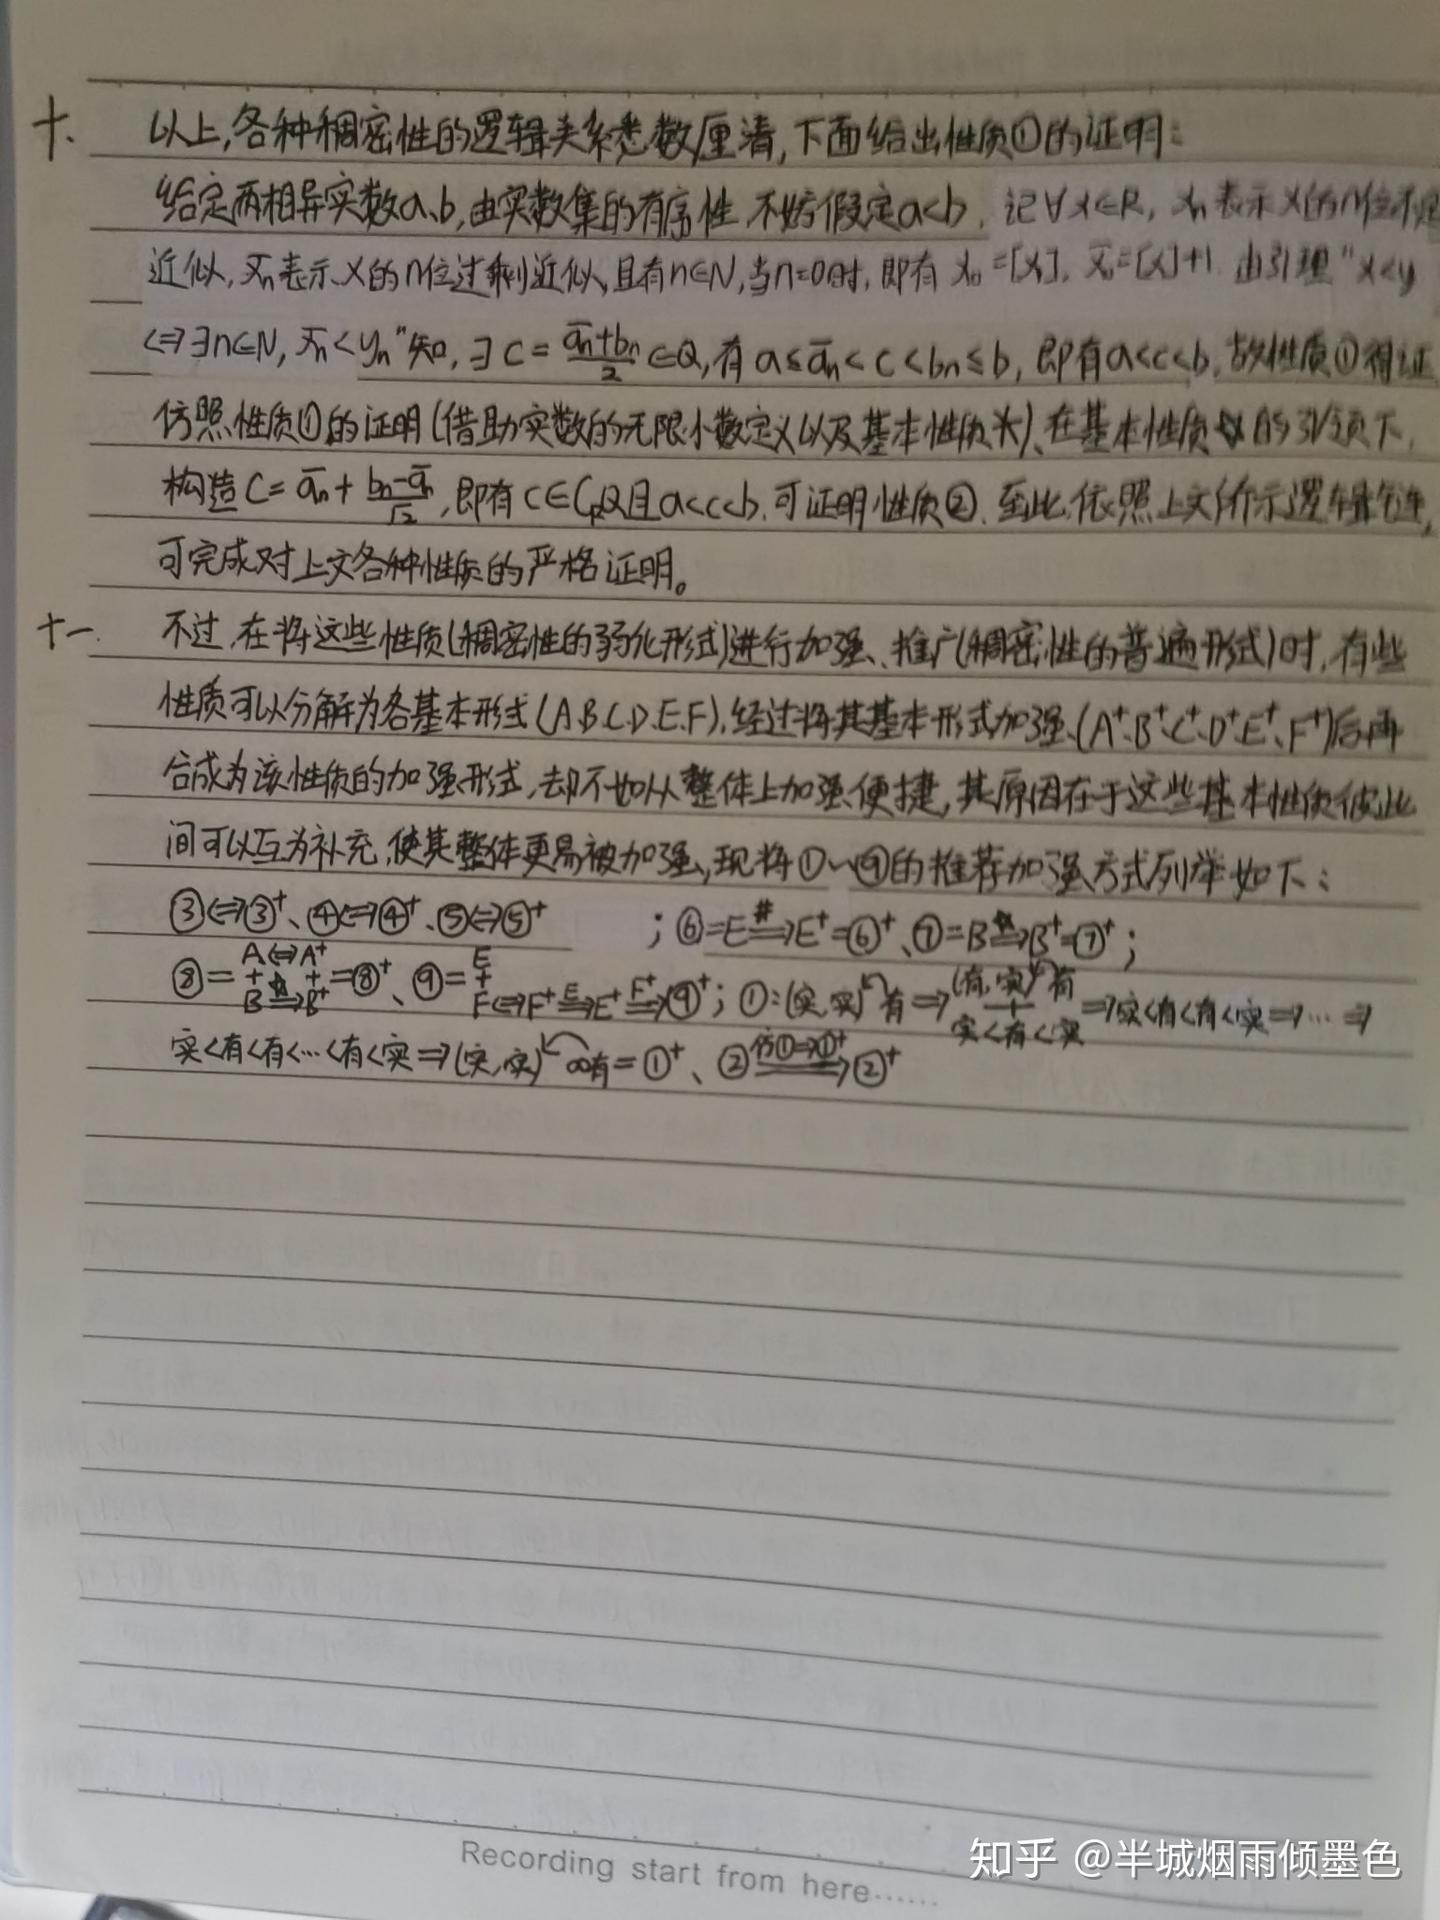 十. 以上,各种稠密性的逻辑关系悉数厘清,下面给出性质①的证明:
给定两相异实数a、b,由实数集的有序性,不妨假定a<b. 记∀x∈R, x_n表示x的n位不足
近似, x̄_n表示x的n位过剩近似,且有n∈N,当n=0时,即有 x_0=[x], x̄_0=[x]+1. 由引理"x<y
⟺∃n∈N, x̄_n<y_n"知, ∃c=(ā_n+b_n)/2∈Q,有a≤ā_n<c<b_n≤b, 即有a<c<b, 故性质①得证
仿照性质①的证明(借助实数的无限小数定义以及基本性质米)、在基本性质 的引领下,
构造c=ā_n+(b_n-ā_n)/√2,即有c∈C_RQ且a<c<b,可证明性质②. 至此,依照上文所示逻辑 ,
可完成对上文各种性质的严格证明。
十一. 不过,在将这些性质(稠密性的弱化形式)进行加强、推广(稠密性的普遍形式)时,有些
性质可以分解为各基本形式(A.B.C.D.E.F),经过将其基本形式加强(A⁺、B⁺、C⁺、D⁺、E⁺、F⁺)后再
合成为该性质的加强形式,却不如从整体上加强便捷,其原因在于这些基本性质彼此
间可以互为补充,使其整体更易被加强,现将①~⑨的推荐加强方式列举如下:
③⟺③⁺、④⟺④⁺、⑤⟺⑤⁺ ; ⑥=E =#⇒ E⁺=⑥⁺、⑦=B ⇒ B⁺=⑦⁺;
⑧= A⟺A⁺ + + B⇒B⁺ =⑧⁺、⑨= E + F⟺F⁺ =E⇒ E⁺ =F⁺⇒ ⑨⁺; ①:(实,实)↶有⇒ (有,实)↶有 + 实<有<实 ⇒实<有<有<实⇒…⇒
实<有<有<…<有<实⇒(实,实)↶∞有=①⁺、② =仿①⇒①⁺⇒ ②⁺
Recording start from here......
知乎 @半城烟雨倾墨色